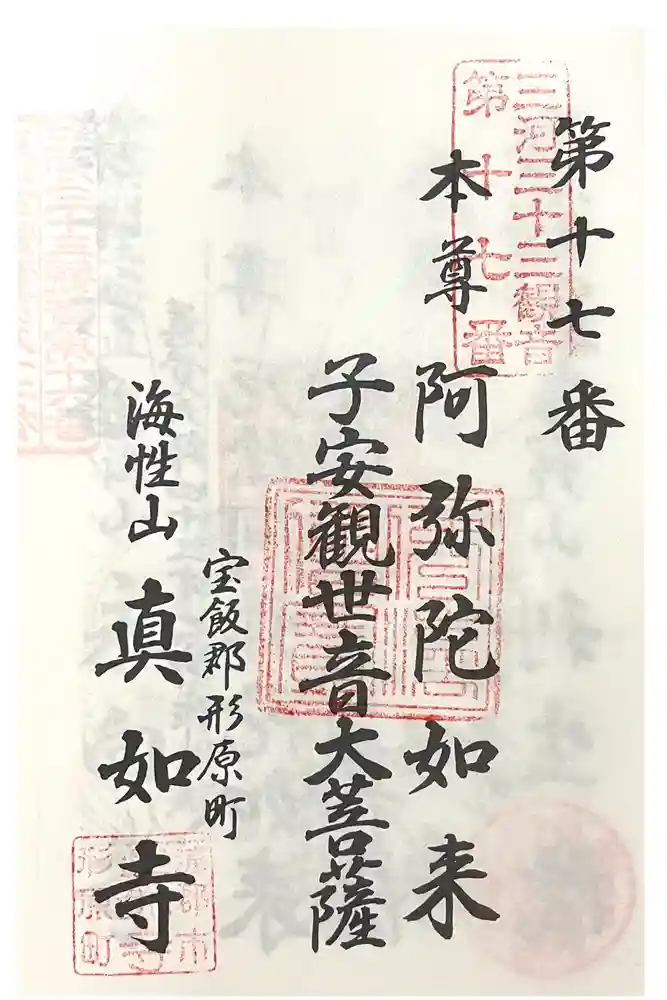 第十七番
三河三十三観音
第十七番
本尊 阿弥陀如来
子安観世音大菩薩
宝飯郡形原町
海性山 真如寺
蒲郡市
形原町